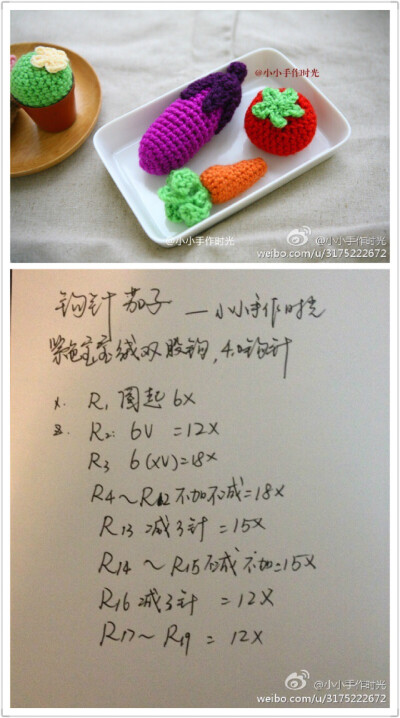 @小小手作时光
@小小手作时光
@小小手作时光
weibo.com/u/3175222672
钩针 茄子 — 小小手作时光
紫色宝宝绒双股钩, 4.0钩针
X. R1 圈起 6X
R2: 6V =12X
R3 6(XV)=18X
R4～R12 不加不减=18X
R13 减3针 =15X
R14 ～ R15不减不加=15X
R16 减3针 = 12X
R17～ R19 = 12X
@小小手作时光
weibo.com/u/3175222672